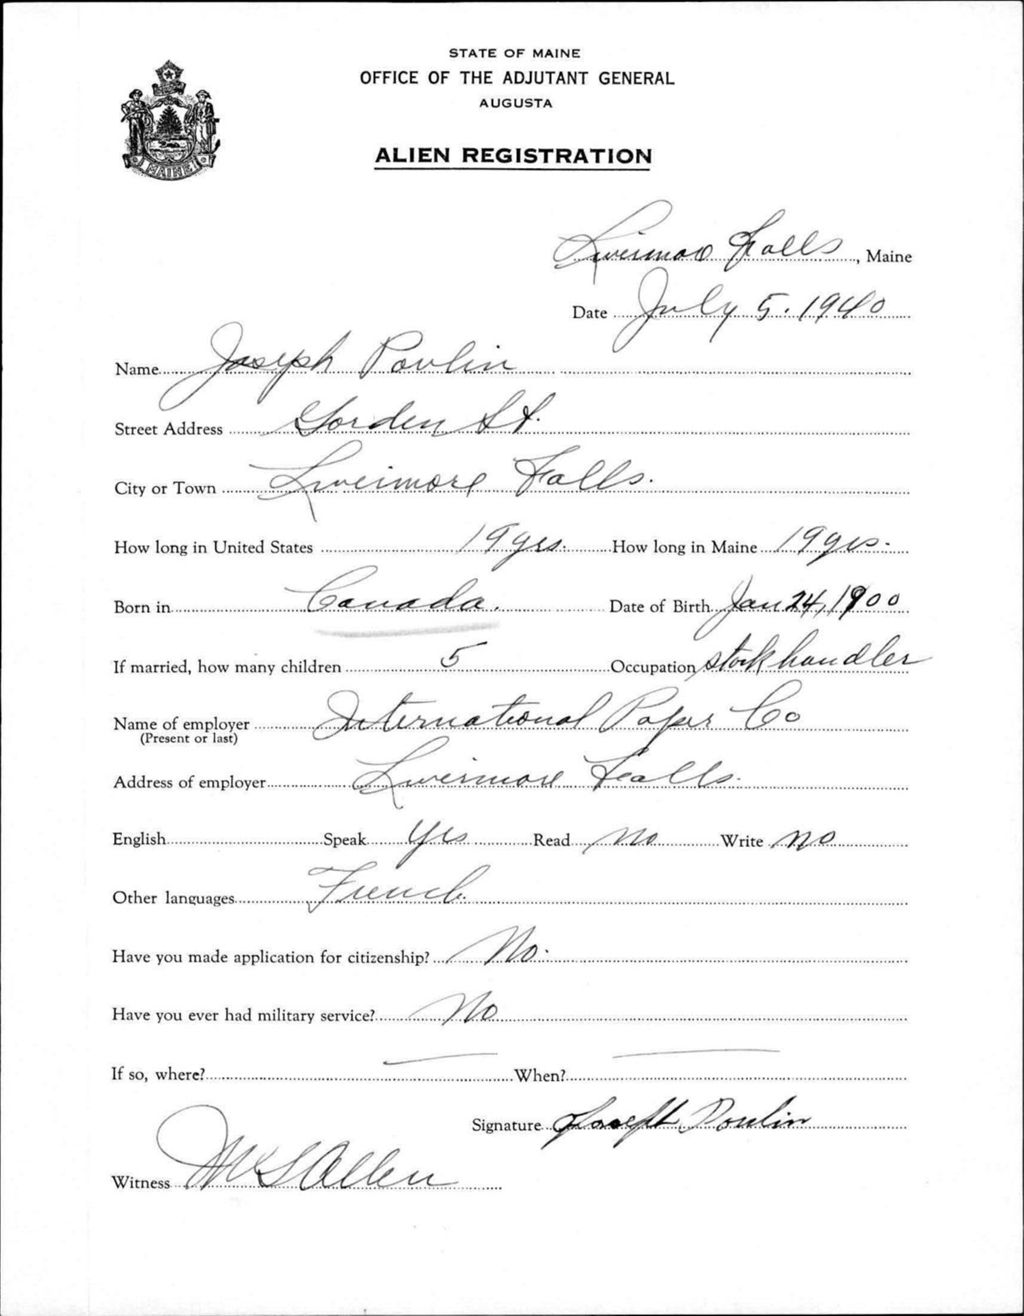 STATE OF MAINE
OFFICE OF THE ADJUTANT GENERAL
AUGUSTA
ALIEN REGISTRATION
MAINE
Livermore Falls, Maine
Date July 5, 1940
Name Joseph Poulin
Street Address Gorden St.
City or Town Livermore Falls.
How long in United States 19 yrs. How long in Maine 19 yrs.
Born in Canada. Date of Birth Jan 24, 1900
If married, how many children 5 Occupation stock handler
Name of employer International Paper Co
(Present or last)
Address of employer Livermore Falls.
English Speak Yes Read no Write no
Other languages French.
Have you made application for citizenship? No.
Have you ever had military service? No
If so, where? — When? —
Signature Joseph Poulin
Witness M S Allen